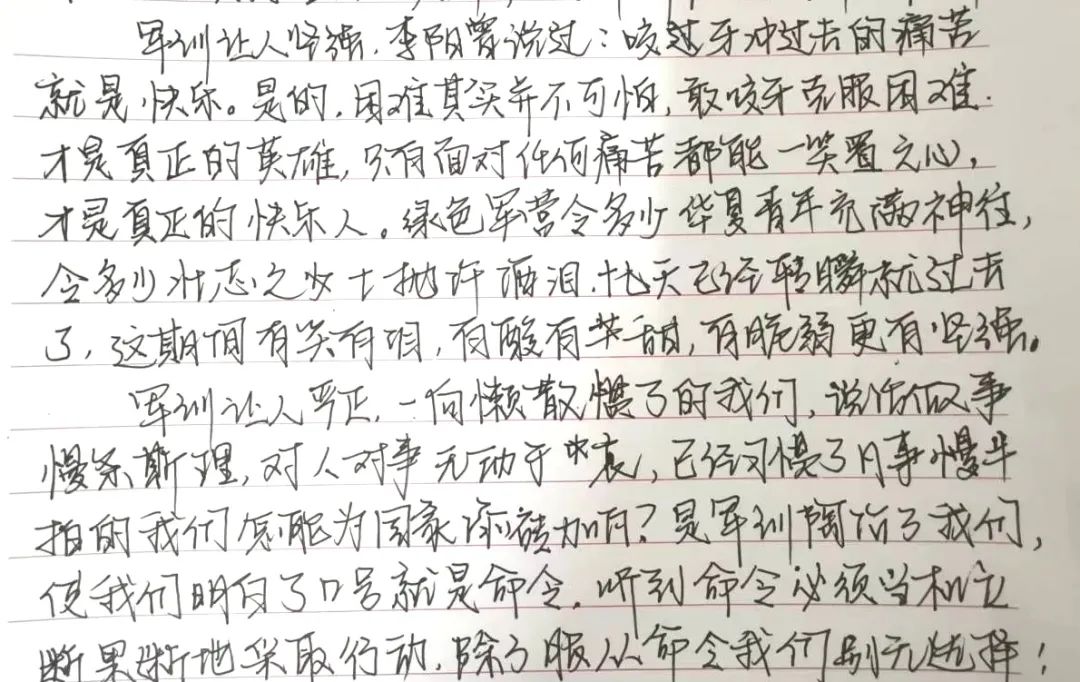 军训让人坚强.李阳曾说过：咬过牙冲过去的痛苦
就是快乐。是的.困难其实并不可怕,敢咬牙克服困难.
才是真正的英雄,只有面对任何痛苦都能一笑置之心,
才是真正的快乐人。绿色军营令多少华夏青年充满神往,
令多少壮志之少士抛汗洒泪.十七天已经转瞬就过去
了,这期间有笑有泪,有酸有苦甜,有脆弱更有坚强。
军训让人严正.一向懒散惯了的我们,说话做事
慢条斯理,对人对事无动于衷,已经习惯了凡事慢半
拍的我们怎能为国家添砖加瓦?是军训陶冶了我们,
使我们明白了口号就是命令.听到命令必须当机立
断果断地采取行动.除了服从命令我们别无选择!